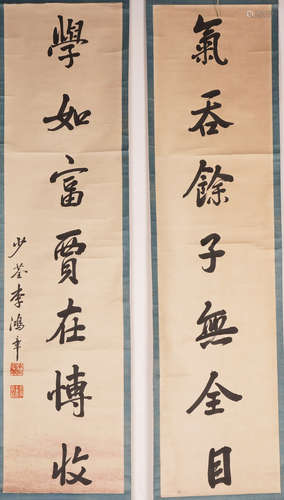 氣吞餘子無全目
學如富賈在博收
少荃李鴻章